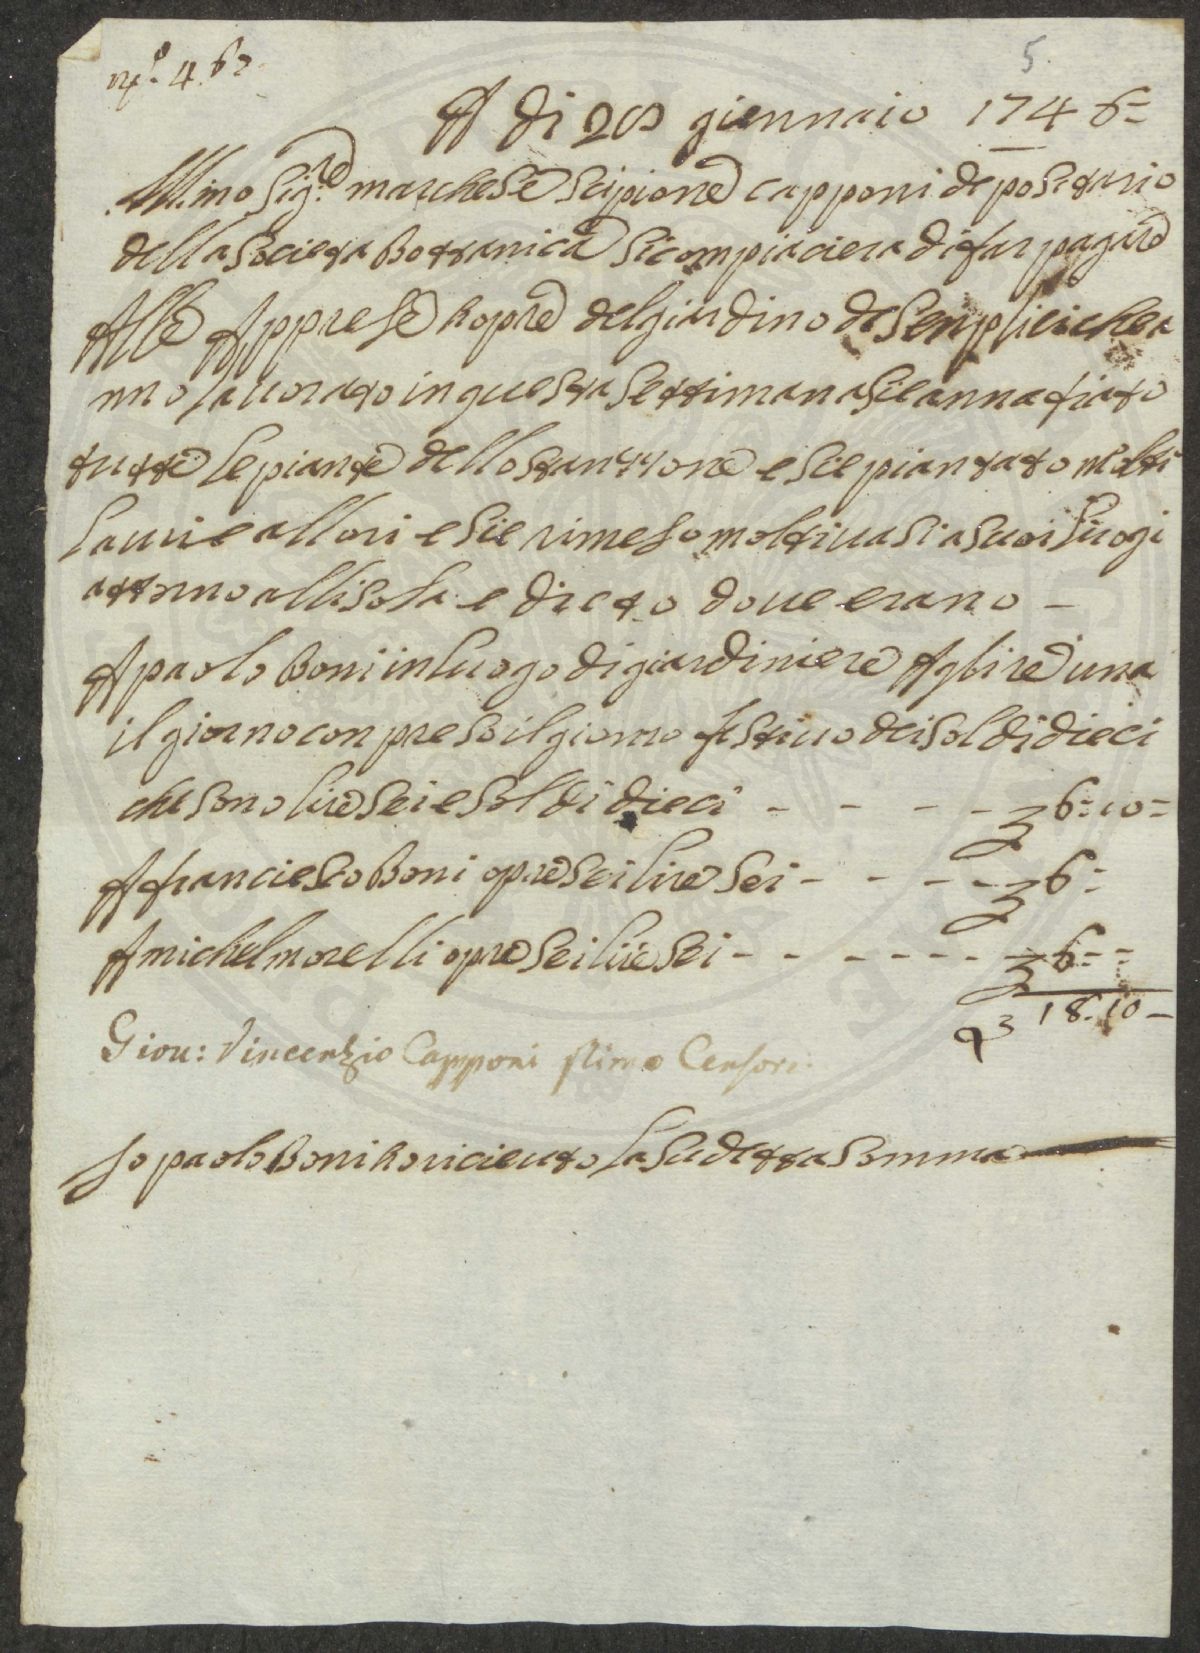 nº. 4.62
5.
A di 20 giennaio 1746=
Illmo Sig.re marchese scipione capponi depositario
della Societa Bottanica si compiaciera di far pagare
Alle Apprese hopre del giardino de Senplici che a
nno lauorato in questa Settimana Sie annafiato
tutte le piante dello stanzzone e Sie piantato molti
lauri e allori e Sie rimeso molti uasi a suoi luogi
attorno all isola e dreto doue erano -
A paolo Boni in luogo di giardiniere A lire una
il giorno con preso il giorno festiuo dei soldi dieci
che sono lire sei e soldi dieci - - - - 6:10=
A franciesco Boni opre sei lire sei - - - - 6:
A michel morelli opre sei lire sei - - - - - - - 6:=
18:10-
Giou: Vincenzio Capponi Primo Censore
Io paolo Boni ho riceuto la sudetta somma